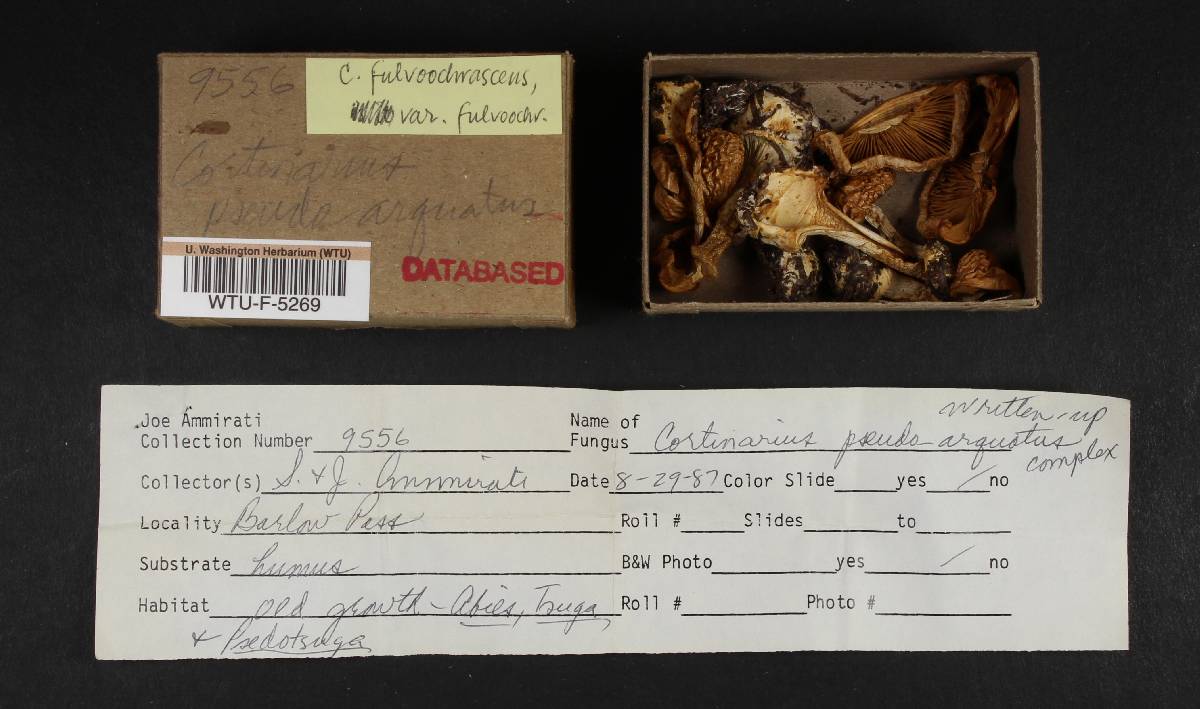 9556
C. fulvoochrascens,
var. fulvoochr.
Cortinarius
pseudo arquatus
U. Washington Herbarium (WTU)
WTU-F-5269
DATABASED
Written-up
Joe Ammirati Name of
Collection Number 9556 Fungus Cortinarius pseudo-arquatus
complex
Collector(s) S. & J. Ammirati Date 8-29-87 Color Slide yes / no
Locality Barlow Pass Roll # Slides to
Substrate humus B&W Photo yes / no
Habitat old growth - Abies, Tsuga, Roll # Photo #
& Psedotsuga